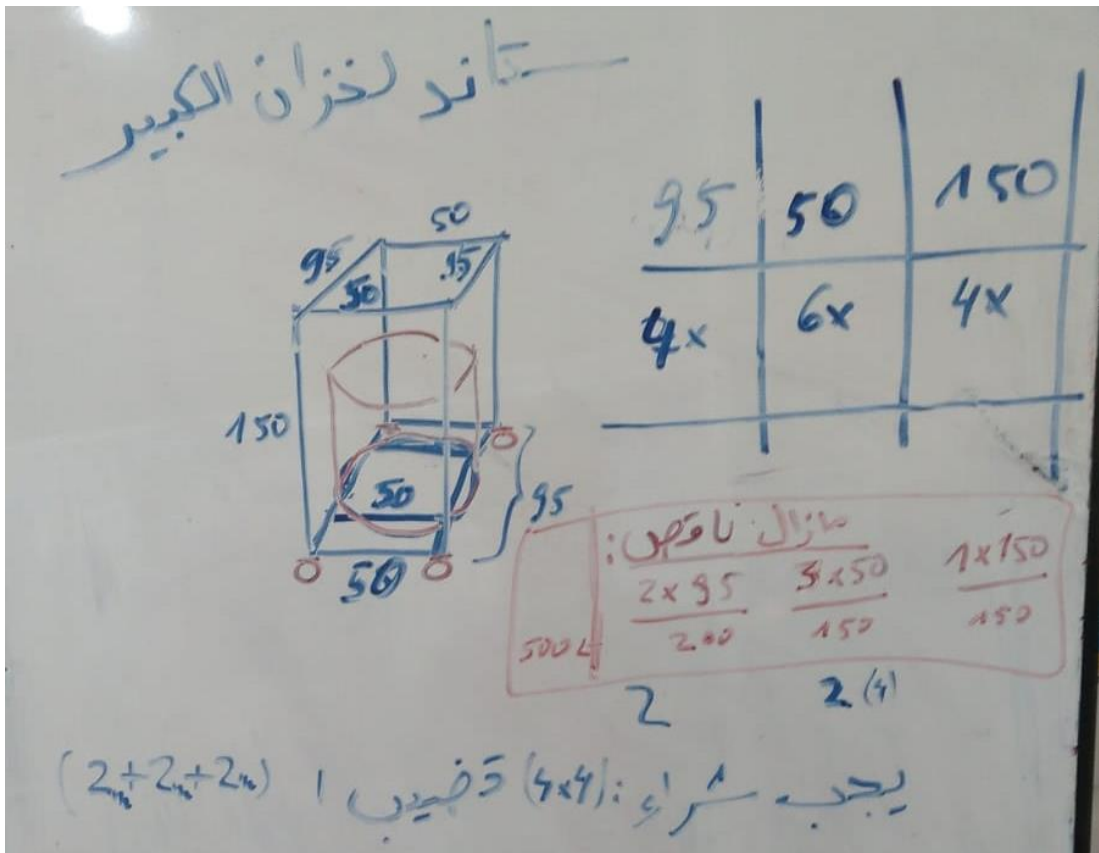 ستاند لخزان الكبير
50
95 95
50
150
50
95
50
95 50 150
4x 6x 4x
مازال ناقص:
2x95 3x50 1x150
500L 200 150 150
2 2 (4)
يجب شراء: (4x4) قضيب 1 (2m+2m+2m)